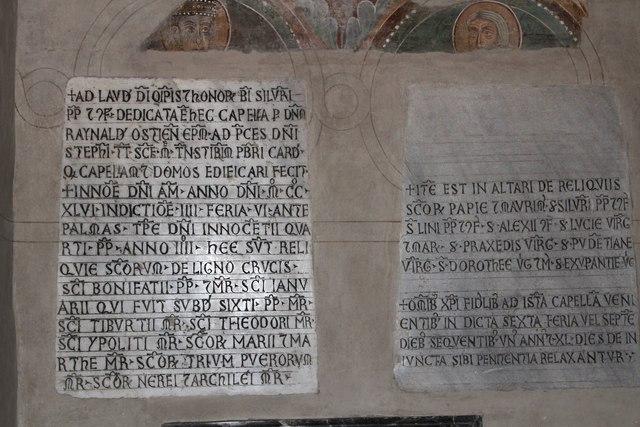 +AD LAVD̄ DĪ OĪPĪS ⁊ HONOR̄ BĪ SILVRĪ
PP̄ ⁊ 9F̄ · DEDICATA Ē HEC CAPELLA P̄ DN̄M
RAYNALD̄ OSTIEN̄ EPM̄ · AD P̄CES DN̄I
STEPHĪ · TT̄ · SCE̅ M̄ T̄NSTIBIM̄ PBR̄I CARD̄
Q̄ CAPELLAM ⁊ DOMOS EDIFICARI FECIT
+INNOĒ DN̄I AM̄ · ANNO DN̄I · M̄ · CC̄
XLVI · INDICTIOĒ · IIII · FERIA · VI · ANTE
PALMAS · TP̄E DN̄I INNOCĒTII QVA
RTI · PP̄ · ANNO IIII · HEE SV̄T RELI
QVIE SC̄TORVM · DE LIGNO CRVCIS
SC̄I BONIFATII · PP̄ · ⁊ M̄R · SC̄I IANV
ARII QVI FVIT SVBD̄ SIXTI · PP̄ · M̄R ·
SC̄I TIBVRTII M̄R · SC̄I THEODORI M̄R ·
SC̄I YPOLITI M̄R · SC̄OR̄ MARII ⁊ MA
RTHE M̄R · SC̄OR̄ TRIVM PVERORVM
M̄R · SC̄OR̄ NEREI ⁊ ARCHILEI M̄R ·
+ITĒ EST IN ALTARI DE RELIQVIIS
SC̄OR̄ PAPIE ⁊ MAVRI M̄R · S̄ SILVR̄I PP̄ ⁊ 9F̄
S̄ LINI PP̄ ⁊ 9F̄ · S̄ ALEXII 9F̄ · S̄ LVCIE VIR̄G
⁊ MAR̄ · S̄ PRAXEDIS VIR̄G · S̄ PVDĒTIANE
VIR̄G · S̄ DOROTHEE V̄G ⁊ M̄ · S̄ EXVPANTIE · V̄E
+OM̄IB̄ XP̄I FIDL̄IB AD ISTĀ CAPELLĀ VENI
ENTIB̄ IN DICTA SEXTA FERIA VEL SEPTĒ
DIEB̄ SEQVENTIB̄ VN̄ ANN̄ ⁊ XL DIES DE IN
IVNCTA SIBI PENITENTIA RELAXANTVR ·